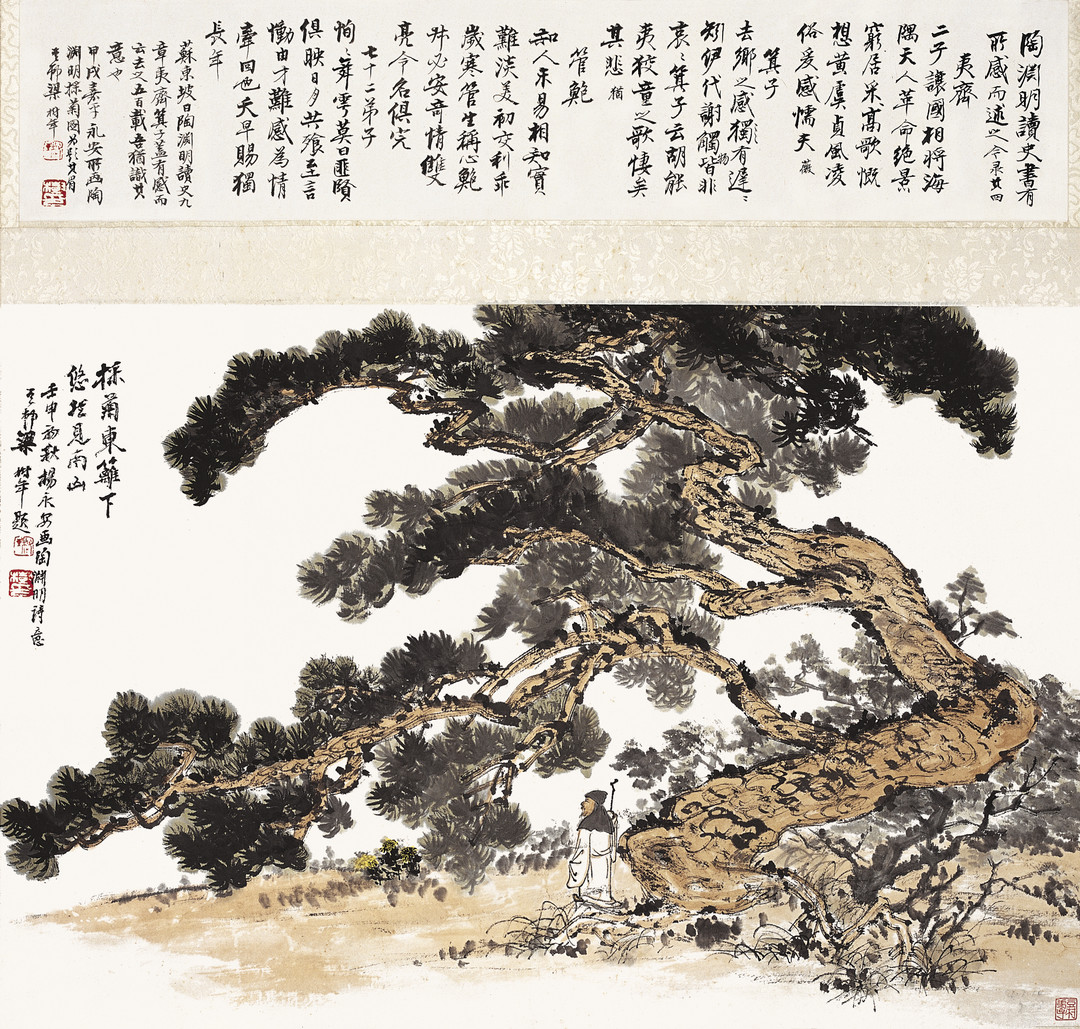 陶淵明讀史書有
所感而述之今录其四
夷齊
二子讓國相將海
隅天人革命絶景
窮居采高歌慨
想黄虞貞風凌
俗爰感懦夫 薇
箕子
去鄉之感獨有遲〻
矧伊代謝觸物皆非
哀〻箕子云胡能
夷狡童之歌悽矣
其悲 猶
管鮑
知人未易相知實
難淡美初交利乖
歲寒管生稱心鮑
叔必安奇情雙
亮令名俱完
七十二弟子
恂〻舞雩莫曰匪賢
俱映日月共飱至言
慟由才難感為情
牽回也夭早賜獨
長年
蘇東坡曰陶淵明讀史九
章夷齊箕子蓋有感而
云去之五百載吾猶識其
意也
甲戌嘉平永安所画陶
淵明採菊圖为其眉
邨梁树年
採菊東籬下
悠然見南山
壬申初秋揚永安画陶淵明詩意
邨梁樹年題